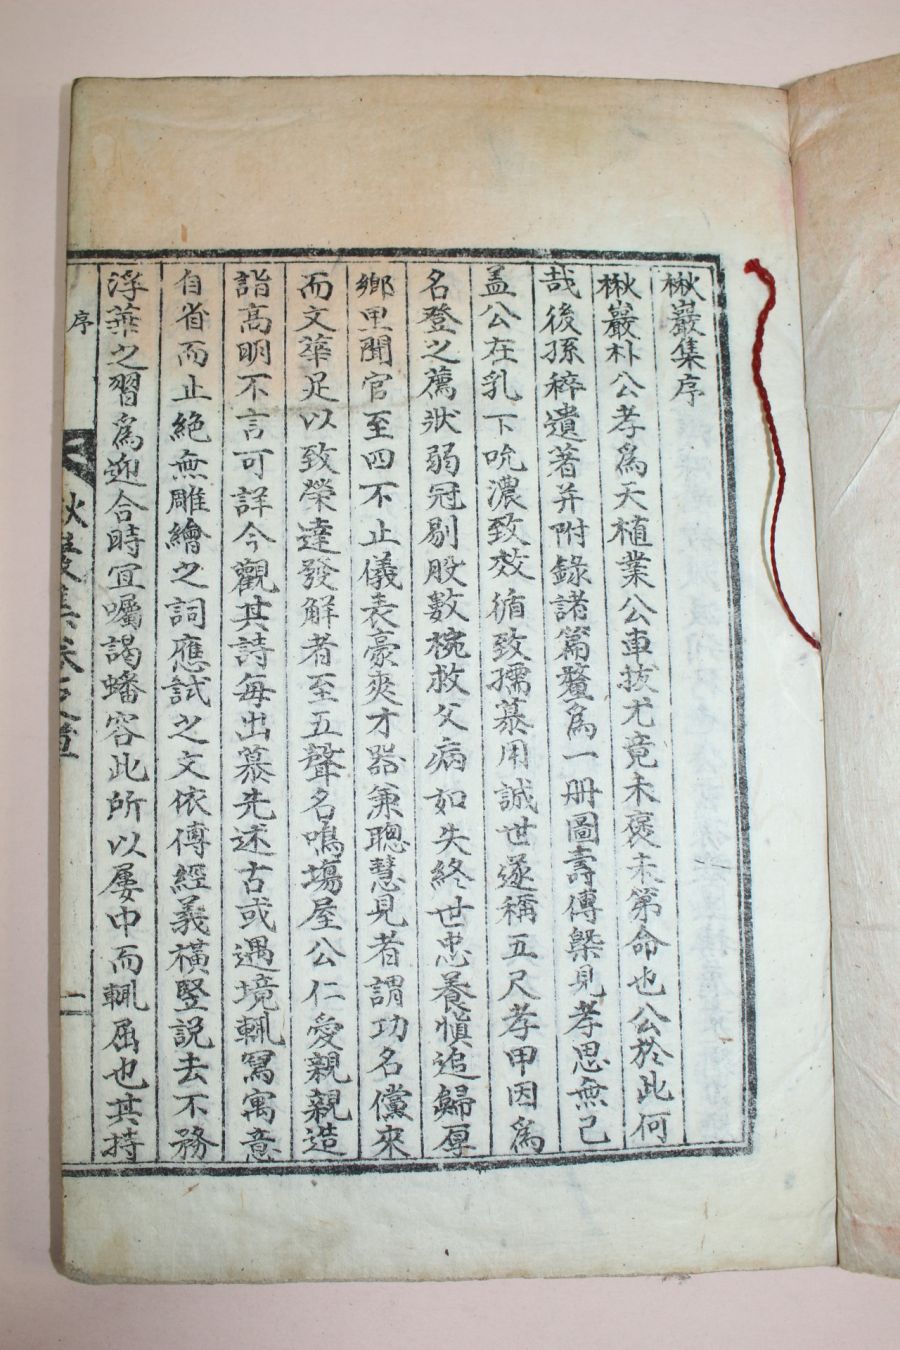 楸巖集序
楸巖朴公孝爲天植業公車拔尤竟未褎未第命也公於此何
哉後孫稡遺著并附錄諸篇釐爲一冊圖壽傳槩見孝思無已
盖公在乳下吮濃致效循致孺慕用誠世遂稱五尺孝甲因爲
名登之薦狀弱冠剔股數椀救父病如失終世忠養愼追歸厚
鄕里聞官至四不止儀表豪爽才器兼聰慧見者謂功名儻來
而文華足以致榮達發解者至五聲名鳴塲屋公仁愛親親造
詣高明不言可詳今觀其詩每出慕先述古或遇境輒寫寓意
自省而止絶無雕繪之詞應試之文依傅經義橫竪説去不務
浮華之習爲迎合時宜囑謁蟠容此所以屢中而輒屈也其持
序
楸巖集卷之壹
一